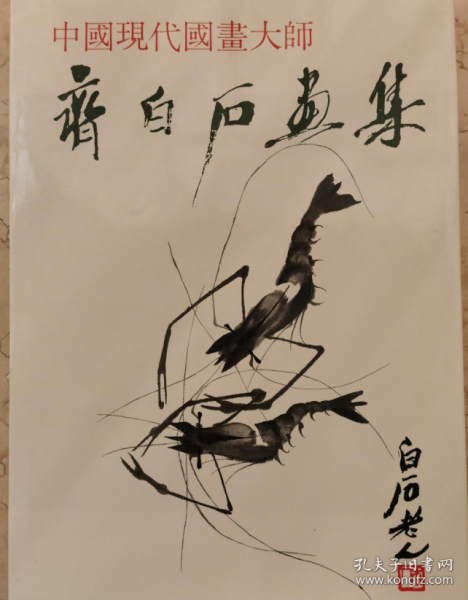 中國現代國畫大師
齊白石畫集
白石老人
孔夫子旧书网
www.kongfz.com